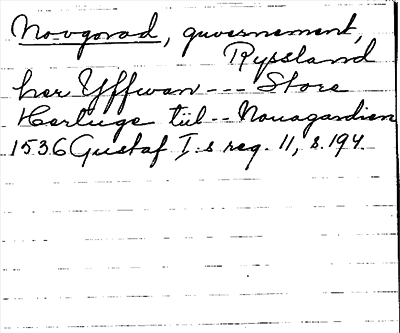 Novgorod, guvernement,
Ryssland
her Yffwan --- Store
Hertuge till -- Nouagardien
1536 Gustaf I:s reg. 11, s. 194.